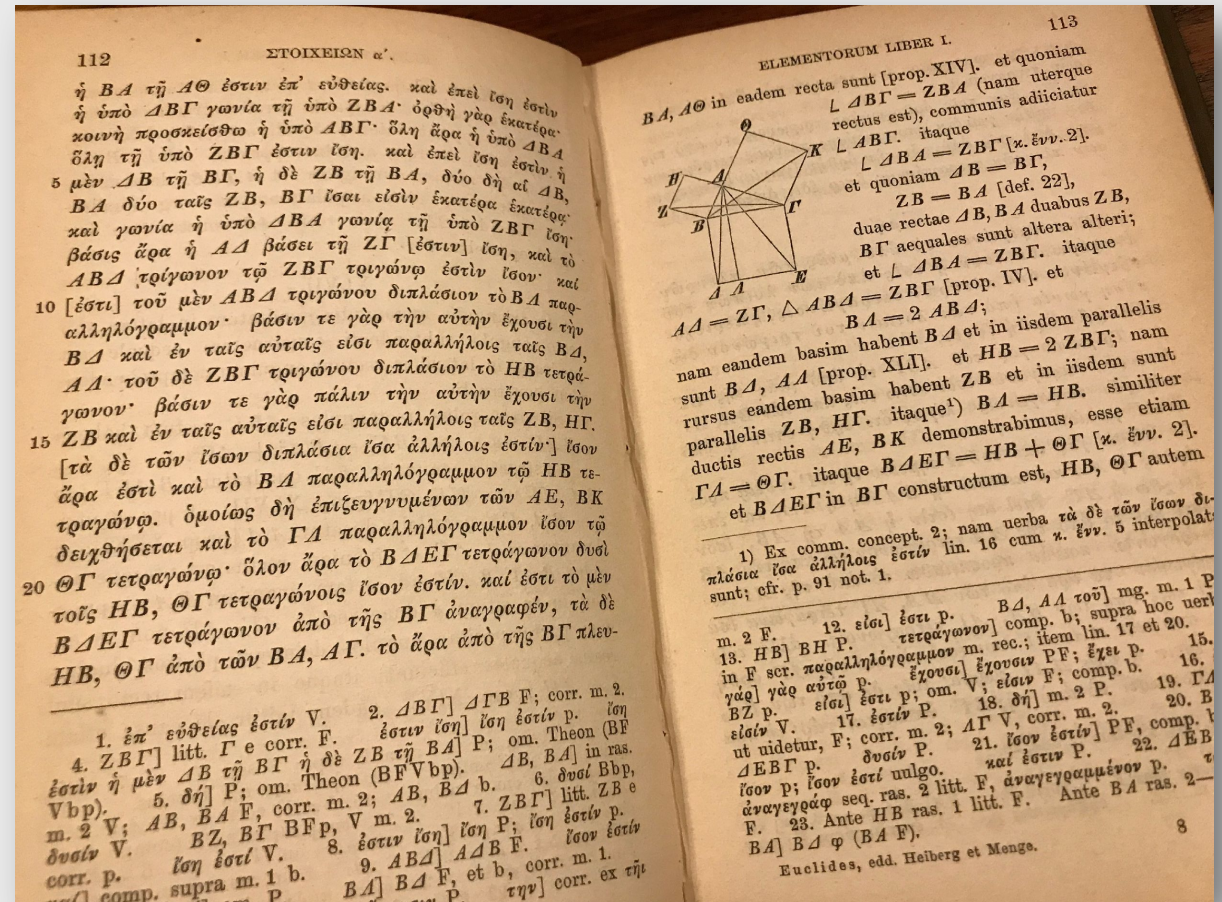 112
ΣΤΟΙΧΕΙΩΝ α′.
ἡ ΒΑ τῇ ΑΘ ἐστιν ἐπ’ εὐθείας. καὶ ἐπεὶ ἴση ἐστὶν
ἡ ὑπὸ ΔΒΓ γωνία τῇ ὑπὸ ΖΒΑ· ὀρθὴ γὰρ ἑκατέρα·
κοινὴ προσκείσθω ἡ ὑπὸ ΑΒΓ· ὅλη ἄρα ἡ ὑπὸ ΔΒΑ
ὅλῃ τῇ ὑπὸ ΖΒΓ ἐστιν ἴση. καὶ ἐπεὶ ἴση ἐστὶν ἡ
5 μὲν ΔΒ τῇ ΒΓ, ἡ δὲ ΖΒ τῇ ΒΑ, δύο δὴ αἱ ΔΒ,
ΒΑ δύο ταῖς ΖΒ, ΒΓ ἴσαι εἰσὶν ἑκατέρα ἑκατέρᾳ·
καὶ γωνία ἡ ὑπὸ ΔΒΑ γωνίᾳ τῇ ὑπὸ ΖΒΓ ἴση·
βάσις ἄρα ἡ ΑΔ βάσει τῇ ΖΓ [ἐστιν] ἴση, καὶ τὸ
ΑΒΔ τρίγωνον τῷ ΖΒΓ τριγώνῳ ἐστὶν ἴσον· καί
10 [ἐστι] τοῦ μὲν ΑΒΔ τριγώνου διπλάσιον τὸ ΒΛ παρ-
αλληλόγραμμον· βάσιν τε γὰρ τὴν αὐτὴν ἔχουσι τὴν
ΒΔ καὶ ἐν ταῖς αὐταῖς εἰσι παραλλήλοις ταῖς ΒΔ,
ΑΛ· τοῦ δὲ ΖΒΓ τριγώνου διπλάσιον τὸ ΗΒ τετρά-
γωνον· βάσιν τε γὰρ πάλιν τὴν αὐτὴν ἔχουσι τὴν
15 ΖΒ καὶ ἐν ταῖς αὐταῖς εἰσι παραλλήλοις ταῖς ΖΒ, ΗΓ.
[τὰ δὲ τῶν ἴσων διπλάσια ἴσα ἀλλήλοις ἐστίν·] ἴσον
ἄρα ἐστὶ καὶ τὸ ΒΛ παραλληλόγραμμον τῷ ΗΒ τε-
τραγώνῳ. ὁμοίως δὴ ἐπιζευγνυμένων τῶν ΑΕ, ΒΚ
δειχθήσεται καὶ τὸ ΓΛ παραλληλόγραμμον ἴσον τῷ
20 ΘΓ τετραγώνῳ· ὅλον ἄρα τὸ ΒΔΕΓ τετράγωνον δυσὶ
τοῖς ΗΒ, ΘΓ τετραγώνοις ἴσον ἐστίν. καί ἐστι τὸ μὲν
ΒΔΕΓ τετράγωνον ἀπὸ τῆς ΒΓ ἀναγραφέν, τὰ δὲ
ΗΒ, ΘΓ ἀπὸ τῶν ΒΑ, ΑΓ. τὸ ἄρα ἀπὸ τῆς ΒΓ πλευ-
1. ἐπ’ εὐθείας ἐστίν V. 2. ΔΒΓ] ΔΓΒ F; corr. m. 2.
4. ΖΒΓ] litt. Γ e corr. F. ἐστιν ἴση] ἴση ἐστίν p. ἴση
ἐστὶν ἡ μὲν ΔΒ τῇ ΒΓ ἡ δὲ ΖΒ τῇ ΒΑ] P; om. Theon (BF
Vbp). 5. δή] P; om. Theon (BFVbp). ΔΒ, ΒΑ] in ras.
m. 2 V; ΑΒ, ΒΑ F, corr. m. 2; ΑΒ, ΒΔ b. 6. δυσί Bbp,
δυσίν V. ΒΖ, ΒΓ BFp, V m. 2. 7. ΖΒΓ] litt. ΖΒ e
corr. p. ἴση ἐστί V. 8. ἐστιν ἴση] ἴση P; ἴση ἐστίν p.
comp. supra m. 1 b. 9. ΑΒΔ] ΑΔΒ F. ἴσον ἐστίν
P. ΒΛ] ΒΔ F, et b, corr. m. 1.
P. την] corr. ex τῆι
113
ELEMENTORUM LIBER I.
ΒΑ, ΑΘ in eadem recta sunt [prop. XIV]. et quoniam
∠ ΔΒΓ = ΖΒΑ (nam uterque
rectus est), communis adiiciatur
∠ ΑΒΓ. itaque
∠ ΔΒΑ = ΖΒΓ [κ. ἔνν. 2].
et quoniam ΔΒ = ΒΓ,
ΖΒ = ΒΑ [def. 22],
duae rectae ΔΒ, ΒΑ duabus ΖΒ,
ΒΓ aequales sunt altera alteri;
et ∠ ΔΒΑ = ΖΒΓ. itaque
Θ
Κ
Η
Α
Ζ
Β
Γ
Δ Λ
Ε
ΑΔ = ΖΓ, △ ΑΒΔ = ΖΒΓ [prop. IV]. et
ΒΛ = 2 ΑΒΔ;
nam eandem basim habent ΒΔ et in iisdem parallelis
sunt ΒΔ, ΑΛ [prop. XLI]. et ΗΒ = 2 ΖΒΓ; nam
rursus eandem basim habent ΖΒ et in iisdem sunt
parallelis ΖΒ, ΗΓ. itaque¹) ΒΛ = ΗΒ. similiter
ductis rectis ΑΕ, ΒΚ demonstrabimus, esse etiam
ΓΛ = ΘΓ. itaque ΒΔΕΓ = ΗΒ + ΘΓ [κ. ἔνν. 2].
et ΒΔΕΓ in ΒΓ constructum est, ΗΒ, ΘΓ autem
1) Ex comm. concept. 2; nam uerba τὰ δὲ τῶν ἴσων δι-
πλάσια ἴσα ἀλλήλοις ἐστίν lin. 16 cum κ. ἔνν. 5 interpolat
sunt; cfr. p. 91 not. 1.
m. 2 F. 12. εἰσι] ἐστι p. ΒΔ, ΑΛ τοῦ] mg. m. 1 P
13. ΗΒ] ΒΗ P. τετράγωνον] comp. b; supra hoc uerb
in F scr. παραλληλόγραμμον m. rec.; item lin. 17 et 20.
γάρ] γὰρ αὐτῷ p. ἔχουσι] ἔχουσιν PF; ἔχει p. 15.
ΒΖ p. εἰσι] ἐστι p; om. V; εἰσιν F; comp. b. 16.
εἰσίν V. 17. ἐστίν P. 18. δή] m. 2 P. 19. ΓΛ
ut uidetur, F; corr. m. 2; ΛΓ V, corr. m. 2. 20. Β
ΔΕΒΓ p. δυσίν P. 21. ἴσον ἐστίν] PF, comp. b
ἴσον p; ἴσον ἐστί uulgo. καί ἐστιν P. 22. ΔΕΒ
ἀναγεγράφ seq. ras. 2 litt. F, ἀναγεγραμμένον p.
F. 23. Ante ΗΒ ras. 1 litt. F. Ante ΒΑ ras. 2—
ΒΑ] ΒΔ φ (ΒΑ F).
Euclides, edd. Heiberg et Menge.
8